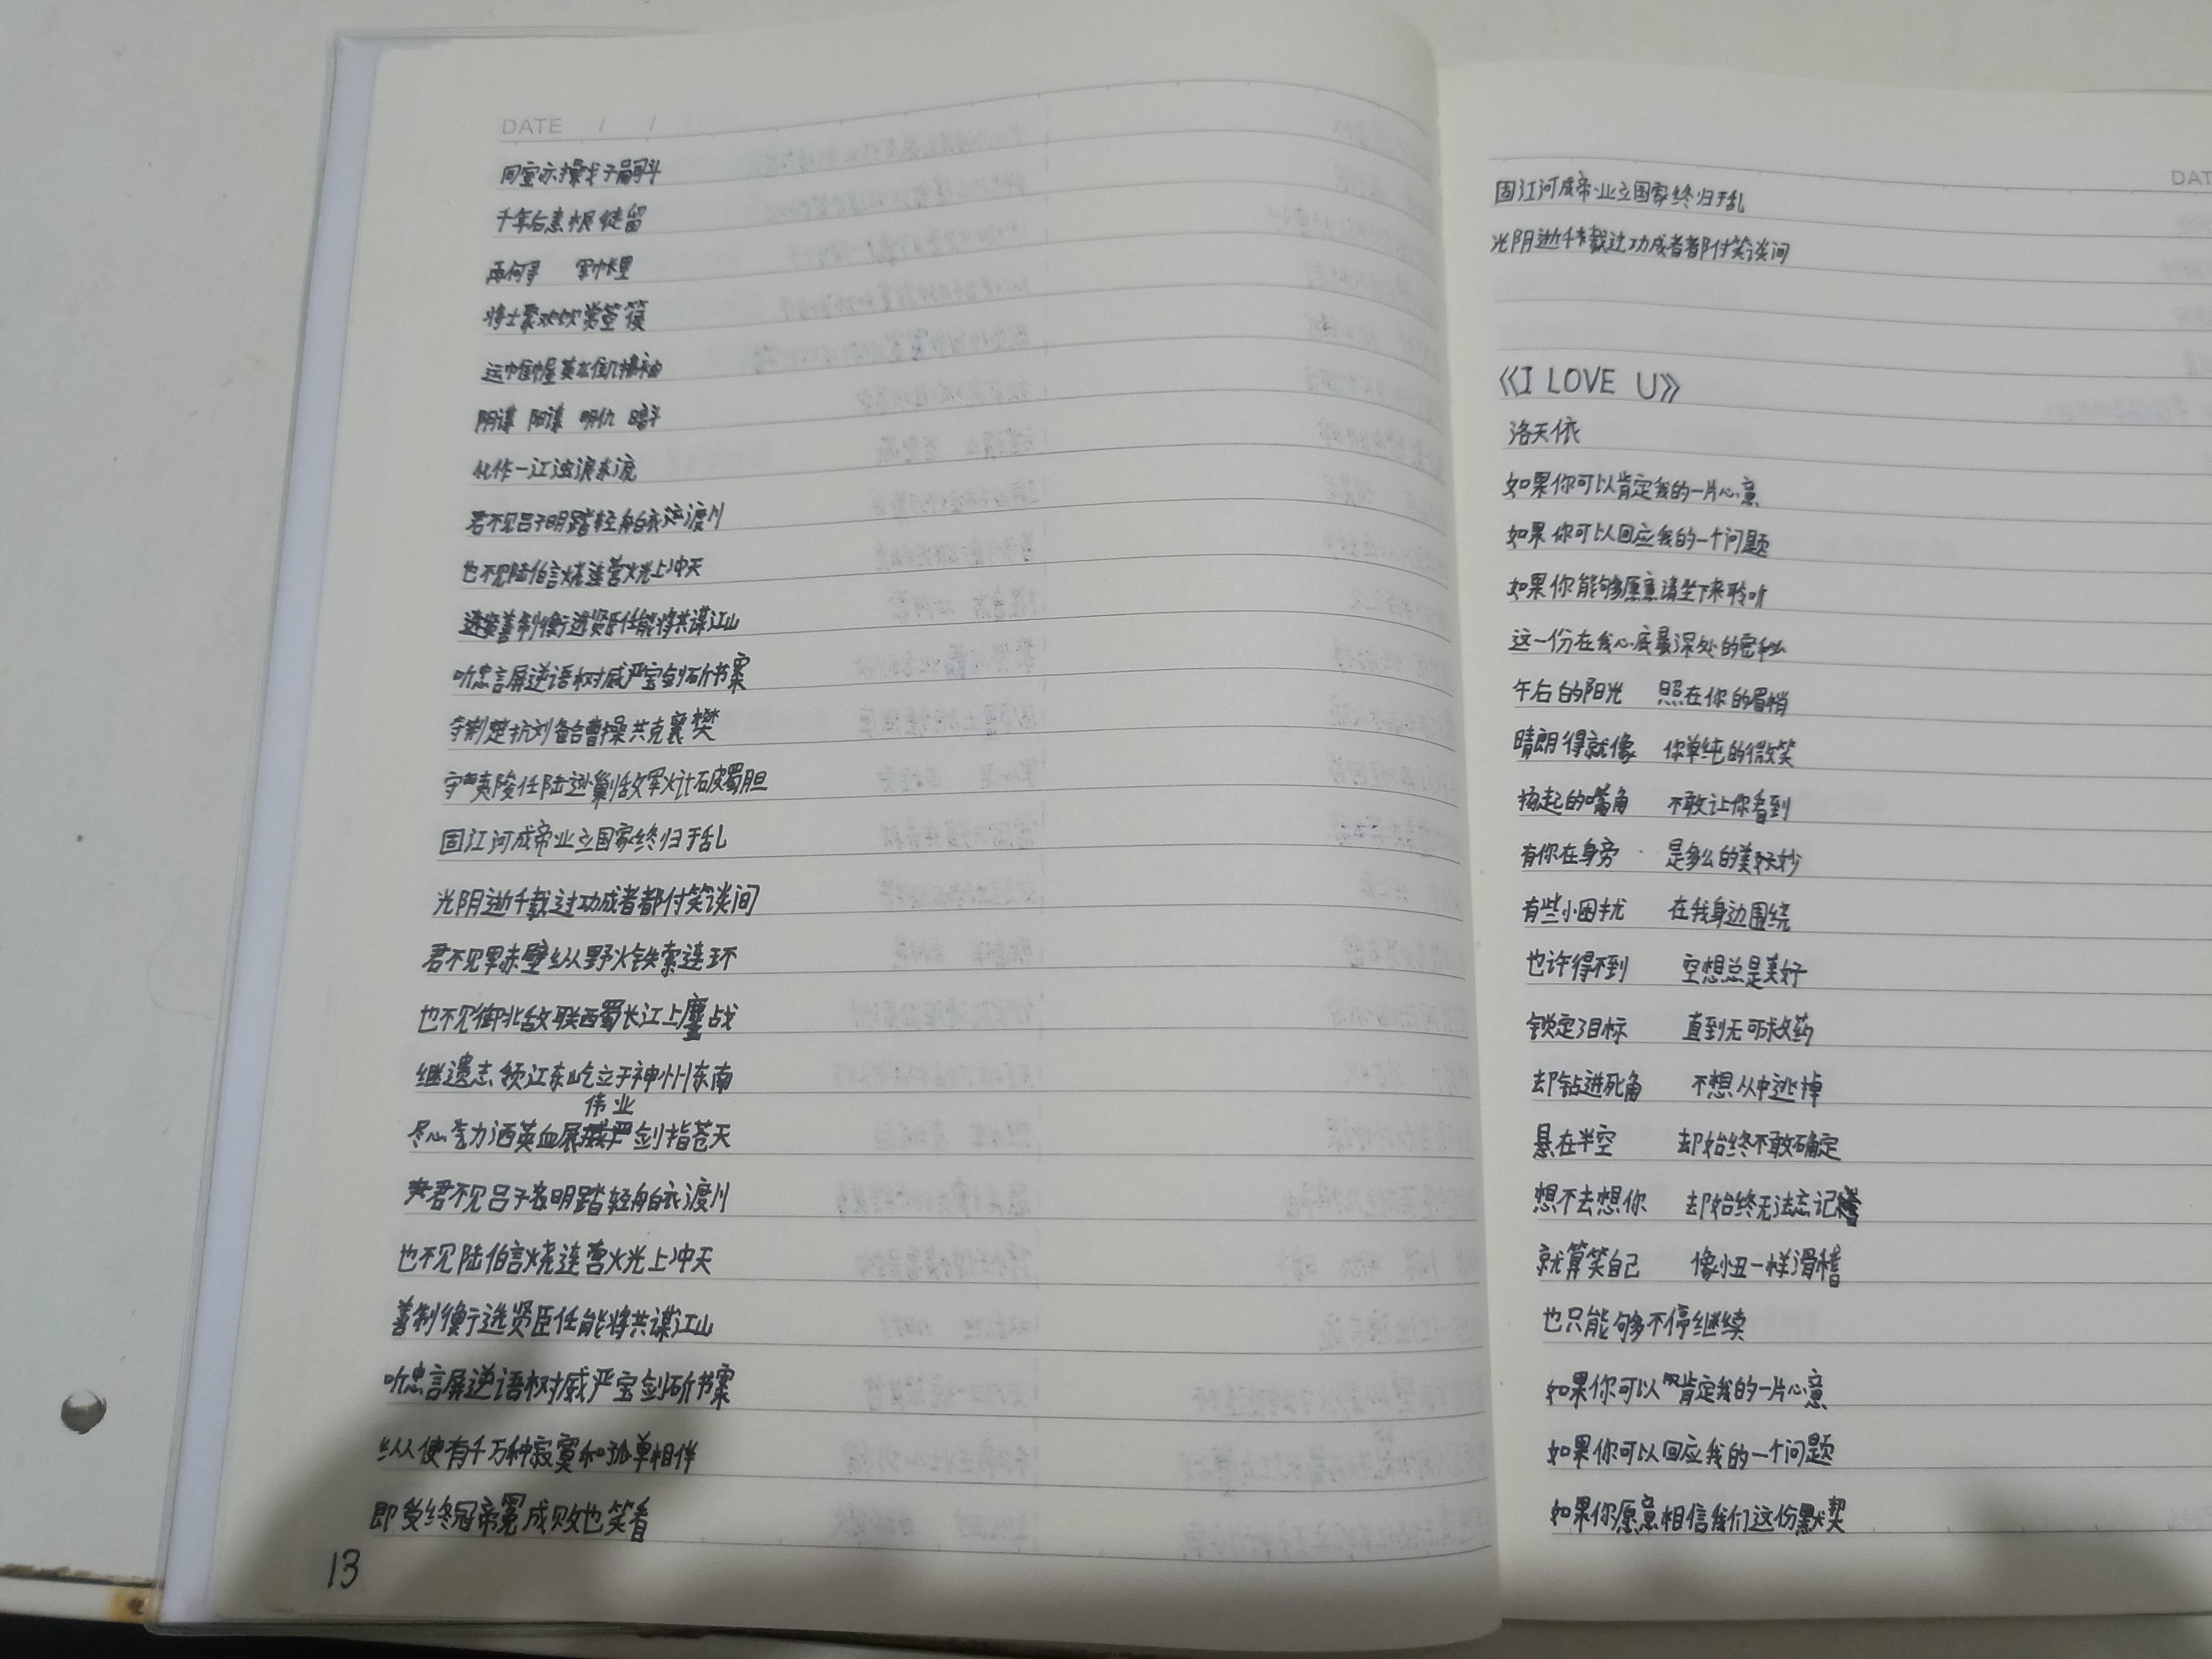 DATE / /
同室亦操戈子嗣斗
千年后素恨徒留
再何寻 军帐里
将士聚欢饮赏箜篌
运帷幄英在
阴谋 阳谋 明仇 暗斗
化作一江浊浪东流
君不见吕子明踏轻舟白衣渡川
也不见陆伯言烧连营火光上冲天
善制衡选贤臣任能将共谋江山
听忠言屏逆语树威严宝剑斫书案
夺荆楚抗刘备合曹操共克襄樊
守夷陵任陆逊剿敌军火计破蜀胆
固江河成帝业立国家终归于乱
光阴逝千载过功成者都付笑谈间
君不见罩赤壁纵野火铁索连环
也不见御北敌联西蜀长江上鏖战
继遗志领江东屹立于神州东南
伟业
尽心气力洒英血展剑指苍天
君不见吕子明踏轻舟白衣渡川
也不见陆伯言烧连营火光上冲天
善制衡选贤臣任能将共谋江山
听忠言屏逆语树威严宝剑斫书案
纵使有千万种寂寞和孤单相伴
即受终冠帝冕成败也笑看
13
DAT
固江河成帝业立国家终归于乱
光阴逝千载过功成者都付笑谈间
《I LOVE U》
洛天依
如果你可以肯定我的一片心意
如果你可以回应我的一个问题
如果你能够愿意请坐下来聆听
这一份在我心底最深处的密秘
午后的阳光 照在你的眉梢
晴朗得就像 你单纯的微笑
扬起的嘴角 不敢让你看到
有你在身旁 是多么的美好妙
有些小困扰 在我身边围绕
也许得不到 空想总是美好
锁定了目标 直到无可救药
却钻进死角 不想从中逃掉
悬在半空 却始终不敢确定
想不去想你 却始终无法忘记
就算笑自己 像小丑一样滑稽
也只能够不停继续
如果你可以肯定我的一片心意
如果你可以回应我的一个问题
如果你愿意相信我们这份默契